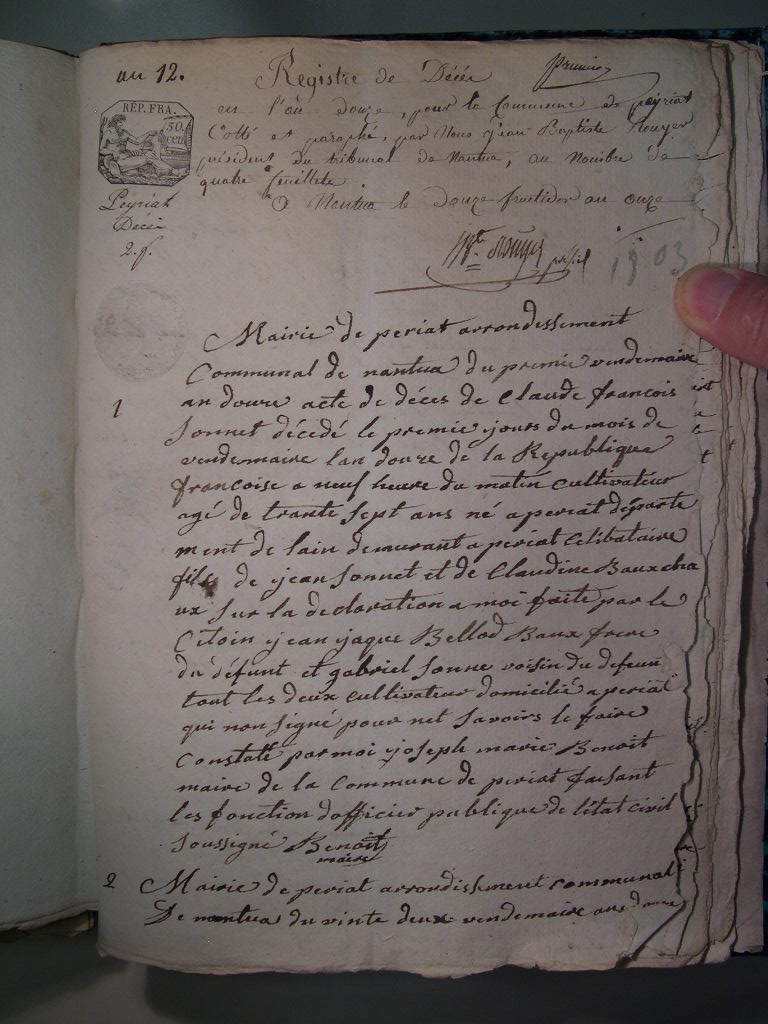 an 12.
Registre de Décès
premier
en l'an douze, pour la Commune de peyriat
Cotté et paraphé, par Nous Jean Baptiste Rouyer
président du tribunal de Nantua, au Nombre de
quatre feuillets
A Nantua le douze fructidor an onze
RÉP. FRA.
50.
CEN
Peyriat
Décès
2. f.
1903
Mairie de periat arrondissement
Communal de nantua du premie vendemaire
1
an douze acte de déces de Claude francois
Sonnet décédé le premie jours du mois de
vendemaire lan douze de la Republique
francoise a neuf heure du matin cultivateur
agé de trante sept ans né a periat départe
ment de lain demurant a periat Celibataire
fils de jean Sonnet et de Claudine Baux cha
ux Sur la declaration a moi faite par le
Citoin jean jaque Bellod Baux frere
du défunt et gabriel Sonne voisin du defeun
tout les deux cultivateur domicilié a periat
qui non Signé pour net Savoirs le faire
Constaté par moi joseph marie Benoit
maire de la Commune de periat faisant
les fonction dofficier publique de létat Civil
Soussigné Benoit
maire
2
Mairie de periat arrondisement communal
De nantua du vinte deux vendemaire ans douze